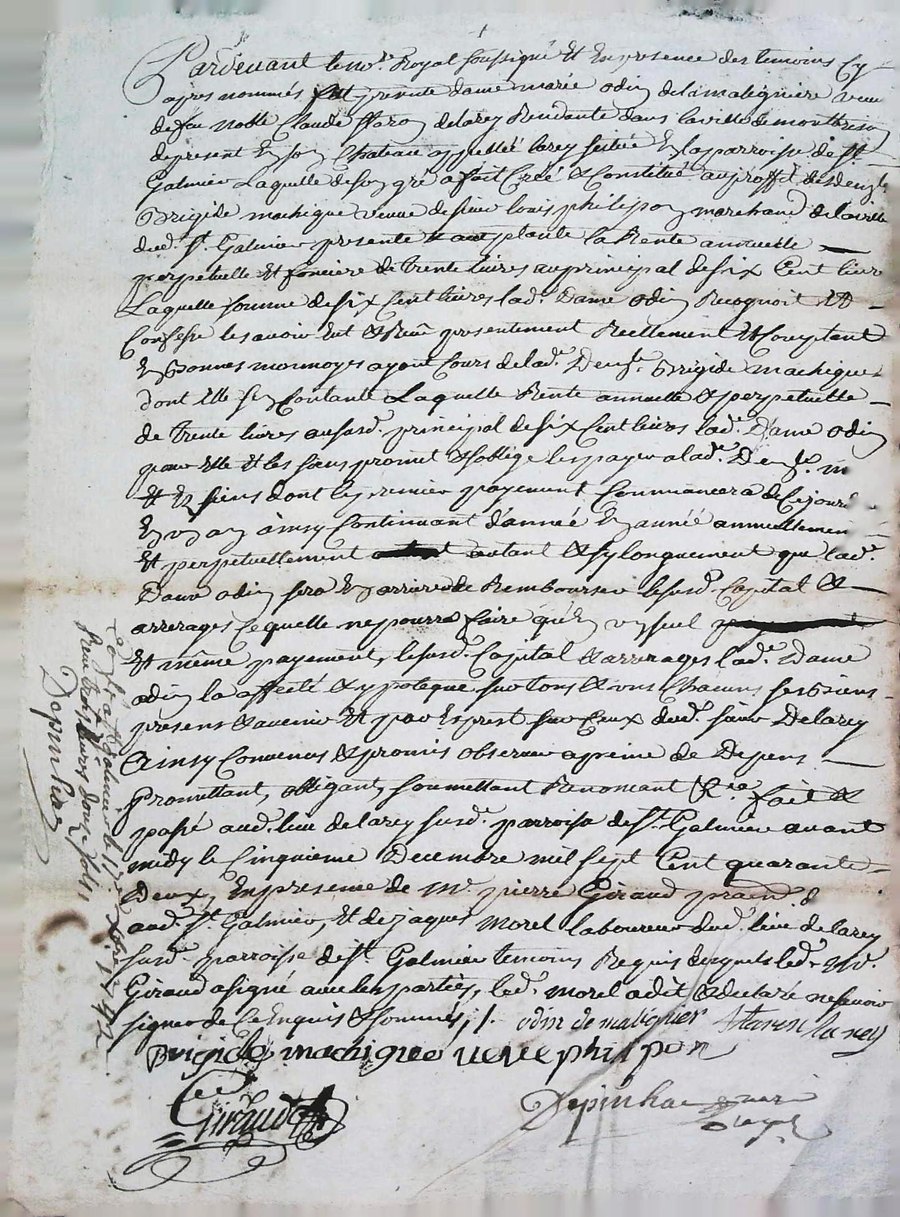 Pardevant le no.re Royal soussigné Et En presence des temoins Cy
apres nommés fut presente dame marie odin delimalignière veuve
de feu noble Claude ffaron delarey Rendante dans la ville de montbrison
de present En son Chateau appellé larey scitué En la parroisse de St.
Galmier Laquelle de son gré a fait Créé & Constitué au proffit de
Brigide machique veuve de sieur louis philipon marchand de la ville
dud. St. Galmier presente & acceptante la Rente annuelle
perpetuelle Et fonciere de trente livres au principal de six Cent livres
Laquelle somme de six Cent livres lad. Dame odin Recognoit Et
Confesse les avoir Eut & Reçu presentement Reellement & Comptant
En Bonnes monnoyes ayant Cours de lad. Brigide machique
dont Elle s'en Contante Laquelle Rente annuelle & perpetuelle
de trente livres au susd. principal de six Cent livres lad. Dame odin
pour Elle Et les siens promet & s'oblige les payer a lad.
Et Es siens dont le premier payement Commancera de Ce jourd
En un an ainsy Continuant d'année En année annuellemen
Et perpetuellement autant & sy longuement que lad.
Dame odin sera En arriere de Rembourser le susd. Capital &
arrerages Ce quelle ne pourra faire qu'En un seul
Et même payement, le susd. Capital & arrerages lad. Dame
odin la affecté & ypotequé sur tous & uns Chacuns ses Biens
presens & avenir Et par Exprest sur Ceux dud. sieur Delarey
Ainsy Convenus & promis observer a peine de Depens
Promettant, obligeant, soumettant Renoncant &.ra fait &
passé aud. lieu de larey susd. parroisse de St. Galmier avant
midy le Cinquieme Decembre mil sept Cent quarante
Deux, En presence de Mr. pierre Giraud
aud. St. Galmier, Et de jaques Morel laboureur dud. lieu de larey
susd. parroisse de St. Galmier temoins Requis desquels led. Mr.
Giraud a signé avec les parties, led. Morel a dit & declaré ne scavoir
signer de Ce Enquis & sommés, /. odin de malignier
Brigide machique veuve philipon
Giraud
Depinhac
Con.lé a St. Galmier le 17e Xbre 1742
Receu trois livres douze sols
Depinhac